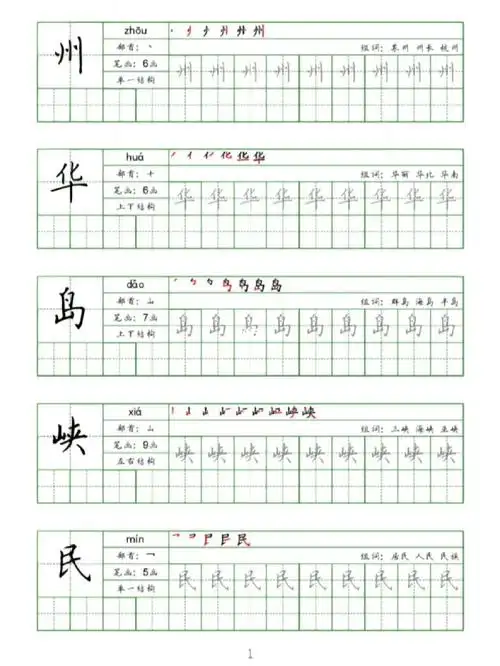 zhōu
州
部首：丶 组词：苏州 州长 杭州
笔画：6画 州 州 州 州 州 州 州 州 州
单一结构
huá
华
部首：十 组词：华丽 华北 华南
笔画：6画 华 华 华 华 华 华 华 华 华
上下结构
dǎo
岛
部首：山 组词：群岛 海岛 半岛
笔画：7画 岛 岛 岛 岛 岛 岛 岛 岛 岛
上下结构
xiá
峡
部首：山 组词：三峡 海峡 巫峡
笔画：9画 峡 峡 峡 峡 峡 峡 峡 峡 峡
左右结构
mín
民
部首：乛 组词：居民 人民 民族
笔画：5画 民 民 民 民 民 民 民 民 民
单一结构
1